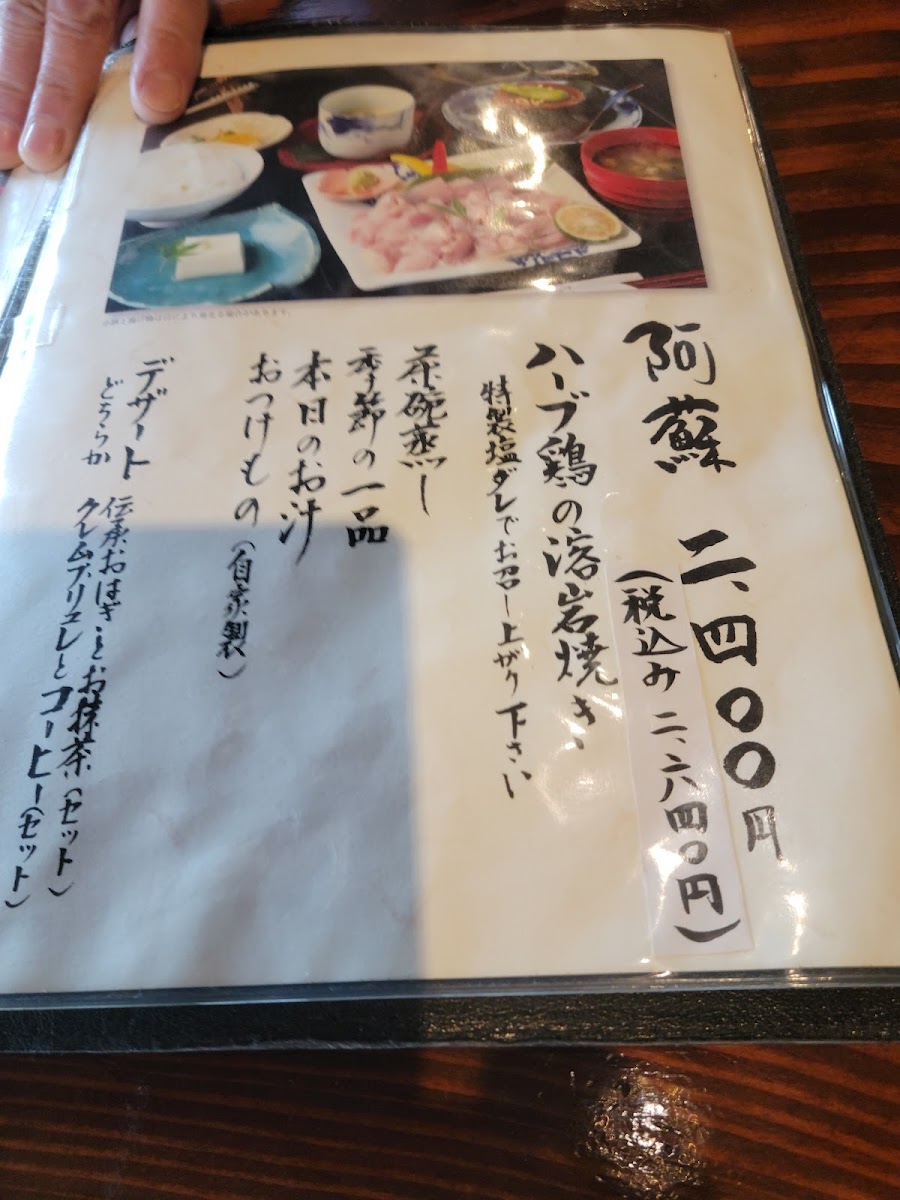 阿蘇 二、四〇〇円
(税込み 二、六四〇円)
ハーブ鶏の溶岩焼き、
特製塩ダレでお召し上がり下さい
茶碗蒸し
季節の一品
本日のお汁
おつけもの(自家製)
デザート
どちらか
伝承おはぎとお抹茶(セット)
クレムブリュレとコーヒー(セット)